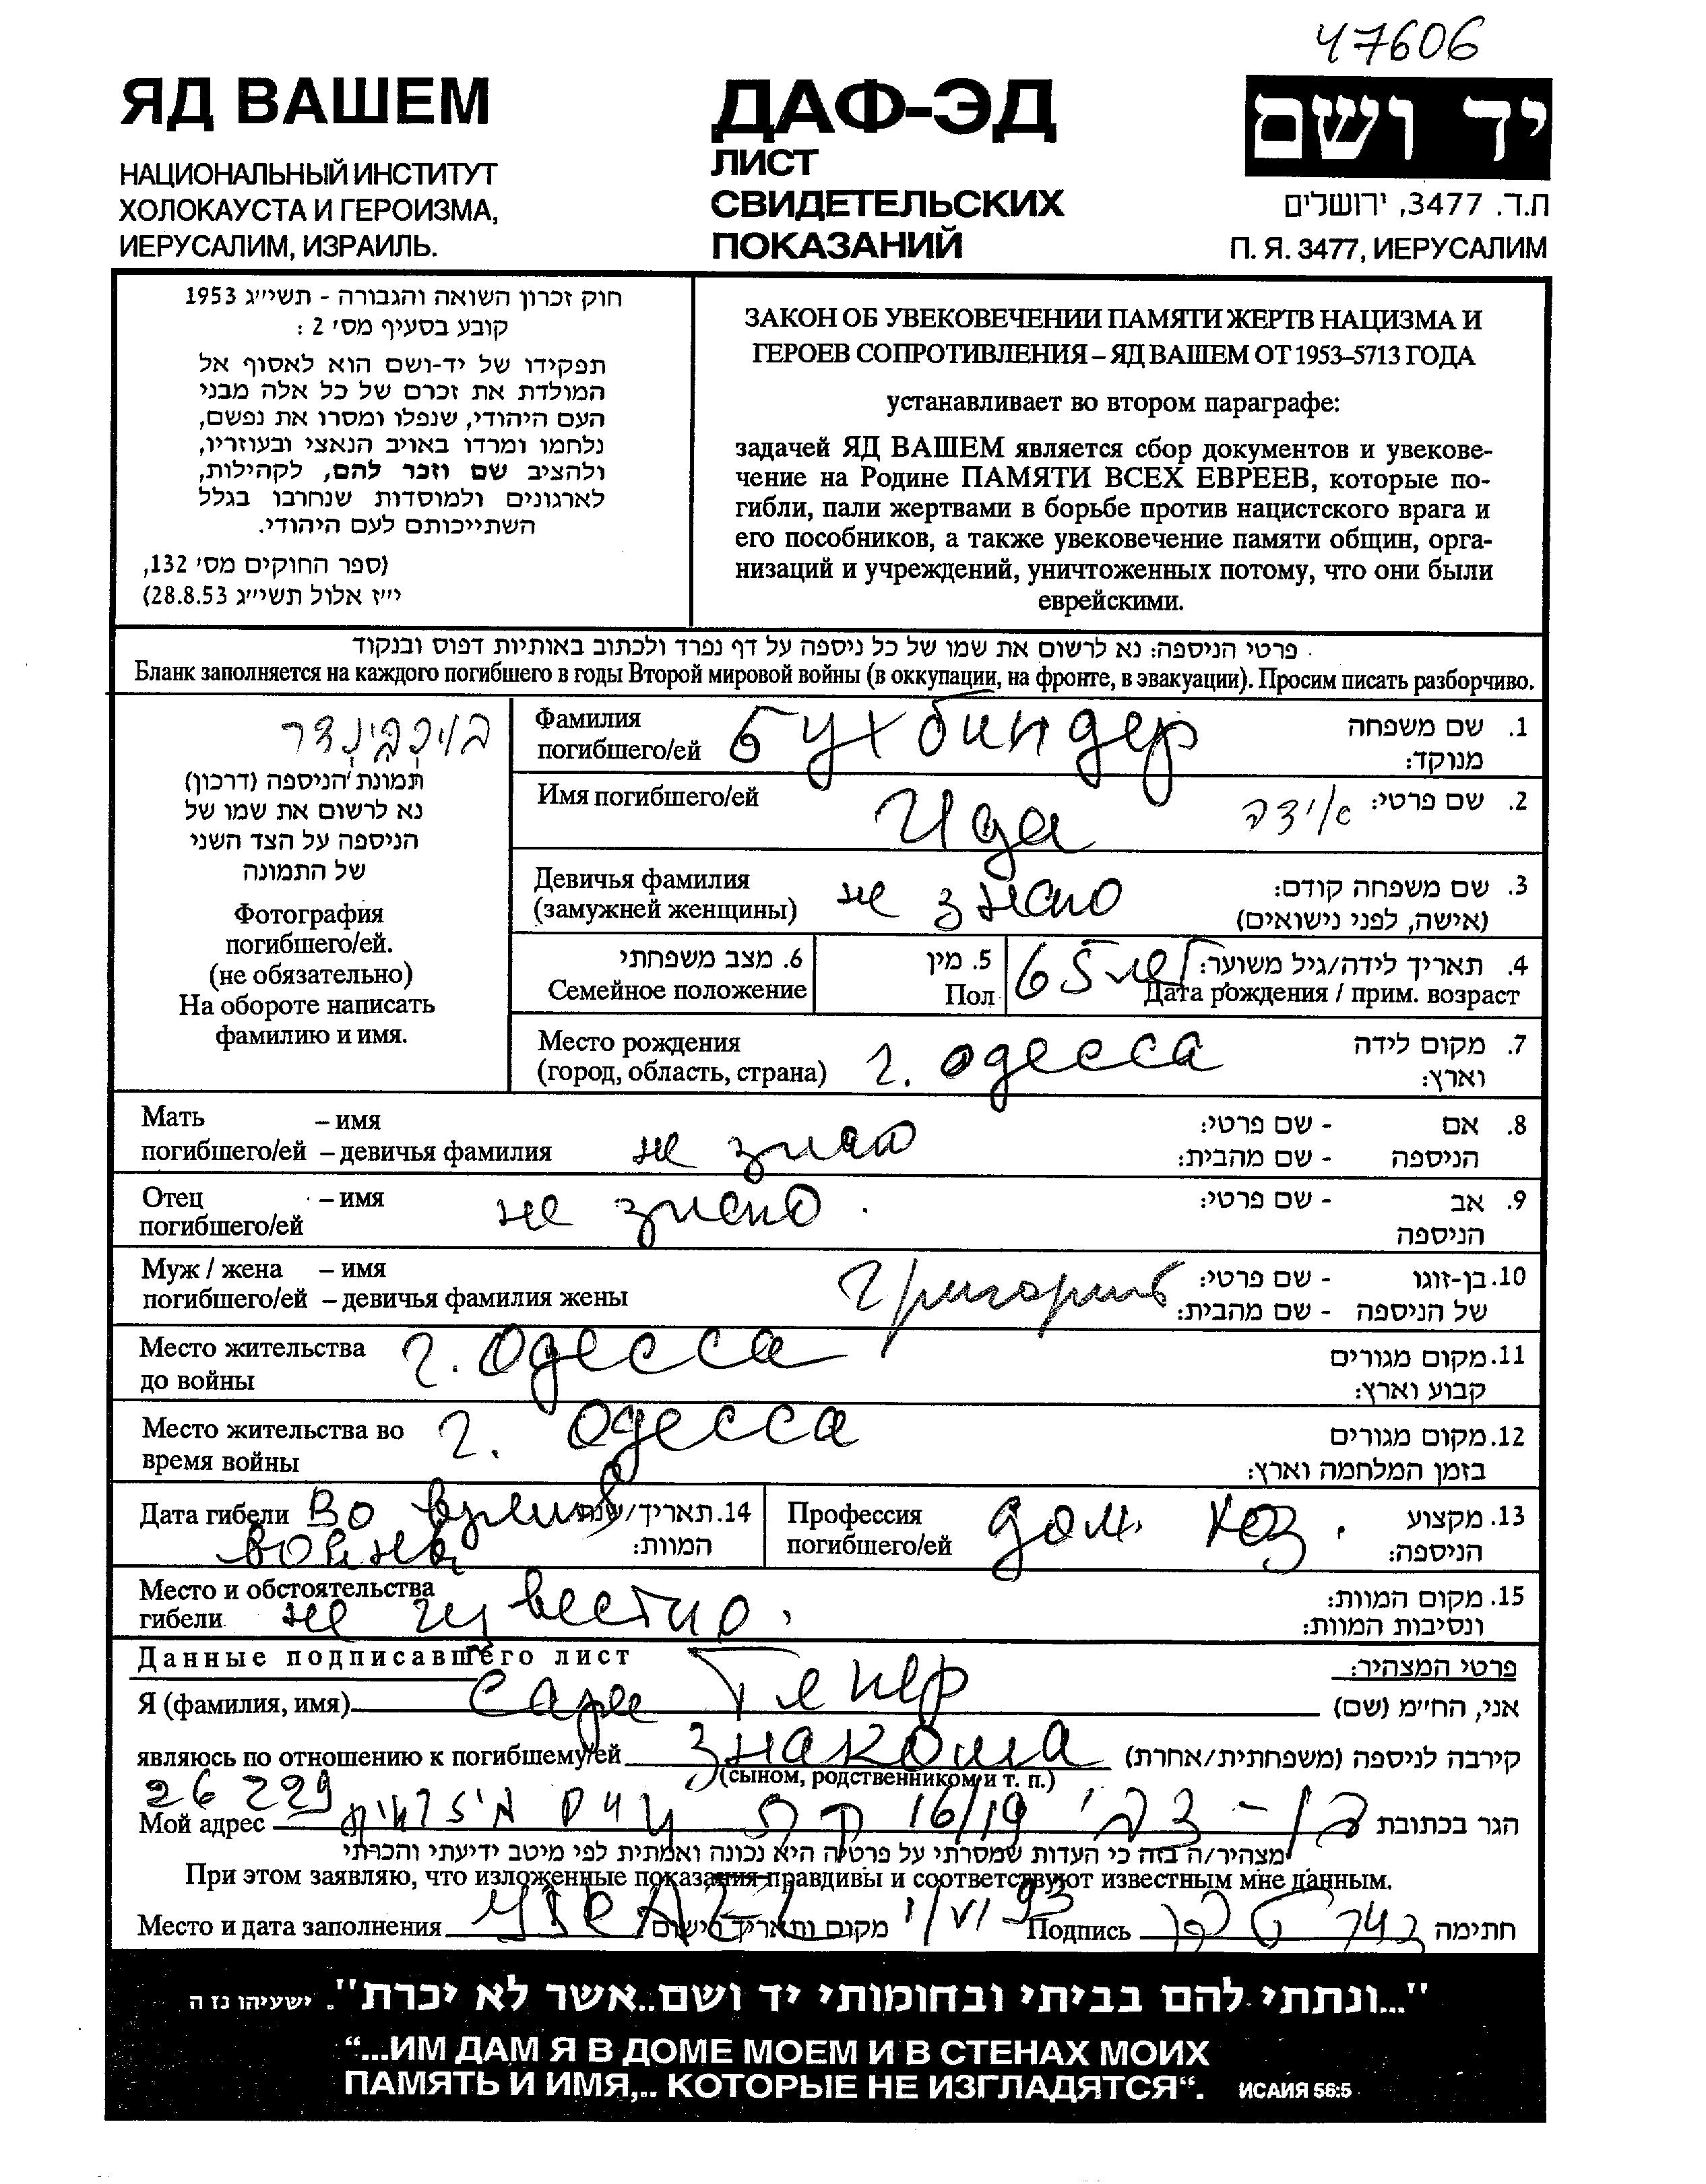 47606
ЯД ВАШЕМ
НАЦИОНАЛЬНЫЙ ИНСТИТУТ
ХОЛОКАУСТА И ГЕРОИЗМА,
ИЕРУСАЛИМ, ИЗРАИЛЬ.
ДАФ-ЭД
ЛИСТ
СВИДЕТЕЛЬСКИХ
ПОКАЗАНИЙ
יד ושם
ת.ד. 3477, ירושלים
П. Я. 3477, ИЕРУСАЛИМ
חוק זכרון השואה והגבורה - תשי״ג 1953
קובע בסעיף מס׳ 2 :
תפקידו של יד-ושם הוא לאסוף אל
המולדת את זכרם של כל אלה מבני
העם היהודי, שנפלו ומסרו את נפשם,
נלחמו ומרדו באויב הנאצי ובעוזריו,
ולהציב שם וזכר להם, לקהילות,
לארגונים ולמוסדות שנחרבו בגלל
השתייכותם לעם היהודי.
(ספר החוקים מס׳ 132,
י״ז אלול תשי״ג 28.8.53)
ЗАКОН ОБ УВЕКОВЕЧЕНИИ ПАМЯТИ ЖЕРТВ НАЦИЗМА И
ГЕРОЕВ СОПРОТИВЛЕНИЯ – ЯД ВАШЕМ ОТ 1953–5713 ГОДА
устанавливает во втором параграфе:
задачей ЯД ВАШЕМ является сбор документов и увекове-
чение на Родине ПАМЯТИ ВСЕХ ЕВРЕЕВ, которые по-
гибли, пали жертвами в борьбе против нацистского врага и
его пособников, а также увековечение памяти общин, орга-
низаций и учреждений, уничтоженных потому, что они были
еврейскими.
פרטי הניספה: נא לרשום את שמו של כל ניספה על דף נפרד ולכתוב באותיות דפוס ובנקוד
Бланк заполняется на каждого погибшего в годы Второй мировой войны (в оккупации, на фронте, в эвакуации). Просим писать разборчиво.
בוכבינדר
תמונת הניספה (דרכון)
נא לרשום את שמו של
הניספה על הצד השני
של התמונה
Фотография
погибшего/ей.
(не обязательно)
На обороте написать
фамилию и имя.
Фамилия
погибшего/ей Бухбиндер
1. שם משפחה
מנוקד:
Имя погибшего/ей Ида
2. שם פרטי: אידה
Девичья фамилия
(замужней женщины) не знаю
3. שם משפחה קודם:
(אישה, לפני נישואים)
6. מצב משפחתי
Семейное положение
5. מין
Пол
4. תאריך לידה/גיל משוער: 65 лет
Дата рождения / прим. возраст
Место рождения
(город, область, страна) г. Одесса
7. מקום לידה
וארץ:
Мать – имя
погибшего/ей – девичья фамилия не знаю
8. אם - שם פרטי:
הניספה - שם מהבית:
Отец – имя
погибшего/ей не знаю.
9. אב - שם פרטי:
הניספה
Муж / жена – имя
погибшего/ей – девичья фамилия жены Григорий
10. בן-זוגו - שם פרטי:
של הניספה - שם מהבית:
Место жительства
до войны г. Одесса
11. מקום מגורים
קבוע וארץ:
Место жительства во
время войны г. Одесса
12. מקום מגורים
בזמן המלחמה וארץ:
Дата гибели Во время
войны
14. תאריך/שנת
המוות:
Профессия
погибшего/ей дом. хоз.
13. מקצוע
הניספה:
Место и обстоятельства
гибели не известно.
15. מקום המוות:
ונסיבות המוות:
Данные подписавшего лист
פרטי המצהיר:
Я (фамилия, имя) Сара
אני, החי״מ (שם)
являюсь по отношению к погибшему/ей знакома
קירבה לניספה (משפחתית/אחרת)
(сыном, родственником и т. п.)
26 229
Мой адрес
הגר בכתובת בן-צבי 16/19
מצהיר/ה בזה כי העדות שמסרתי על פרטיה היא נכונה ואמתית לפי מיטב ידיעתי והכרתי
При этом заявляю, что изложенные показания правдивы и соответствуют известным мне данным.
Место и дата заполнения
מקום ותאריך הישום
1/VI 93
Подпись
חתימה
"...ונתתי להם בביתי ובחומותי יד ושם..אשר לא יכרת". ישעיהו נז ה
“...ИМ ДАМ Я В ДОМЕ МОЕМ И В СТЕНАХ МОИХ
ПАМЯТЬ И ИМЯ,.. КОТОРЫЕ НЕ ИЗГЛАДЯТСЯ“. ИСАИЯ 56:5